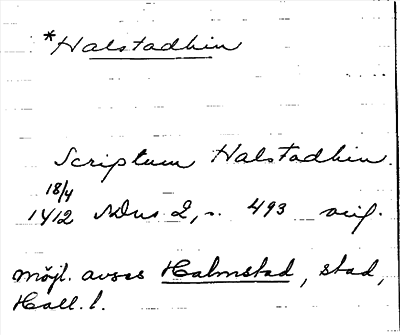 *Halstadhin
Scriptum Halstadhin.
18/4
1412 SDns 2, s. 493 orig.
möjl. avses Halmstad, stad,
Hall. l.